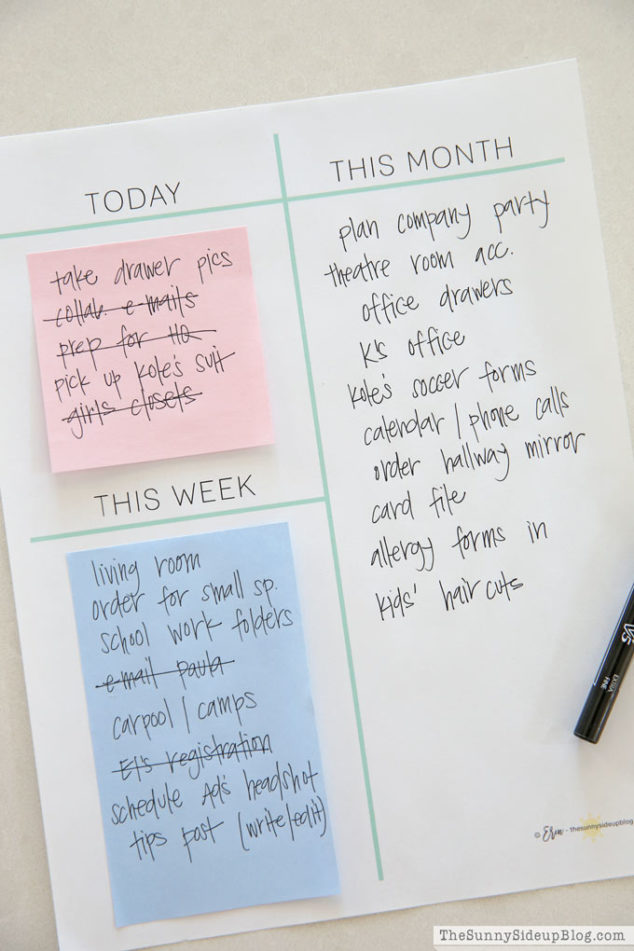 TODAY
take drawer pics
collab. e-mails
prep for HQ
pick up Kole's suit
girls closets
THIS WEEK
living room
order for small sp.
school work folders
e-mail paula
carpool / camps
El's registration
schedule Ad's headshot
tips post (write/edit)
THIS MONTH
plan company party
theatre room acc.
office drawers
K's office
Kole's soccer forms
calendar / phone calls
order hallway mirror
card file
allergy forms in
kids' haircuts
V5
EXTRA FINE
© Erin - thesunnysideupblog
TheSunnySideupBlog.com